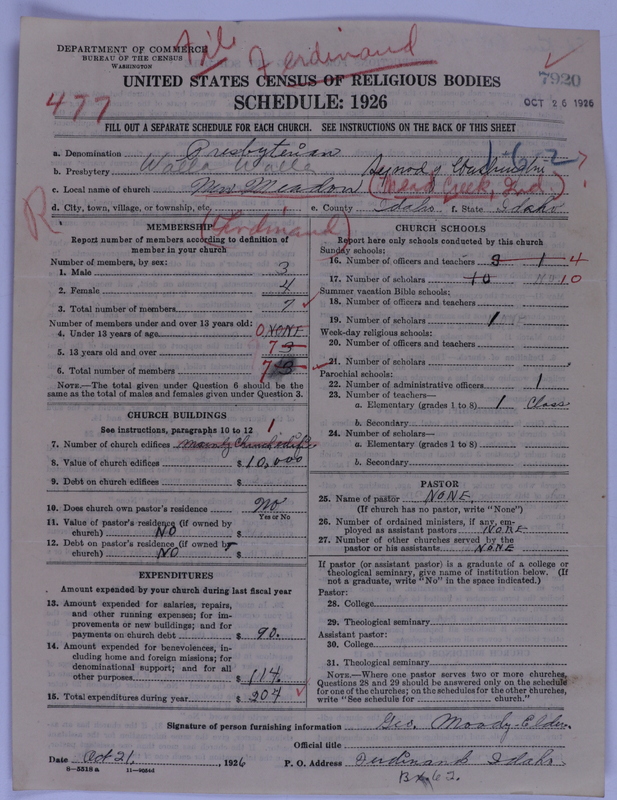 File Ferdinand
DEPARTMENT OF COMMERCE
BUREAU OF THE CENSUS
WASHINGTON
7920
UNITED STATES CENSUS OF RELIGIOUS BODIES
477
SCHEDULE: 1926
OCT 26 1926
FILL OUT A SEPARATE SCHEDULE FOR EACH CHURCH. SEE INSTRUCTIONS ON THE BACK OF THIS SHEET
a. Denomination Presbyterian
162
b. Presbytery Walla Walla Synod of Washington
c. Local name of church New Meadow (Mead Creek, Ind.)
d. City, town, village, or township, etc. (Ferdinand) e. County Idaho f. State Idaho
R
MEMBERSHIP
Report number of members according to definition of
member in your church
Number of members, by sex:
1. Male 3
2. Female 4
3. Total number of members 7
Number of members under and over 13 years old:
4. Under 13 years of age 0 NONE
5. 13 years old and over 7 3
6. Total number of members 7 3
NOTE.—The total given under Question 6 should be the
same as the total of males and females given under Question 3.
CHURCH BUILDINGS
See instructions, paragraphs 10 to 12 1
7. Number of church edifices
8. Value of church edifices $10,000
9. Debt on church edifices $
10. Does church own pastor's residence No
Yes or No
11. Value of pastor's residence (if owned by
church) NO $
12. Debt on pastor's residence (if owned by
church) NO $
EXPENDITURES
Amount expended by your church during last fiscal year
13. Amount expended for salaries, repairs,
and other running expenses; for im-
provements or new buildings; and for
payments on church debt $ 90.
14. Amount expended for benevolences, in-
cluding home and foreign missions; for
denominational support; and for all
other purposes $114
15. Total expenditures during year $204
CHURCH SCHOOLS
Report here only schools conducted by this church
Sunday schools:
16. Number of officers and teachers 3 1 4
17. Number of scholars 10 10
Summer vacation Bible schools:
18. Number of officers and teachers
19. Number of scholars 1
Week-day religious schools:
20. Number of officers and teachers
21. Number of scholars
Parochial schools:
22. Number of administrative officers 1
23. Number of teachers—
a. Elementary (grades 1 to 8) 1 Class
b. Secondary
24. Number of scholars—
a. Elementary (grades 1 to 8)
b. Secondary
PASTOR
25. Name of pastor NONE
(If church has no pastor, write "None")
26. Number of ordained ministers, if any, em-
ployed as assistant pastors NONE
27. Number of other churches served by the
pastor or his assistants NONE
If pastor (or assistant pastor) is a graduate of a college or
theological seminary, give name of institution below. (If
not a graduate, write "No" in the space indicated.)
Pastor:
28. College
29. Theological seminary
Assistant pastor:
30. College
31. Theological seminary
NOTE.—Where one pastor serves two or more churches,
Questions 28 and 29 should be answered only on the schedule
for one of the churches; on the schedules for the other churches,
write "See schedule for church."
Signature of person furnishing information Geo. Moody Elder
Official title
Date Oct 21, 1926 P. O. Address Ferdinand Idaho
8-5518 a
Bx 62.